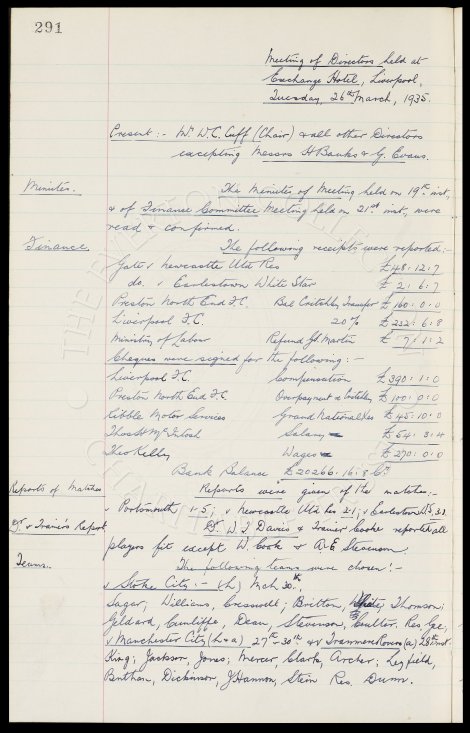 291
Meeting of Directors held at
Exchange Hotel, Liverpool,
Tuesday, 26th March, 1935.
Present :- Mr W.C. Cuff (Chair) & all other Directors
excepting Messrs H Banks & G. Evans.
Minutes. The Minutes of Meeting held on 19th inst,
& of Finance Committee Meeting held on 21st inst, were
read & confirmed.
Finance. The following receipts were reported:-
Gate v Newcastle Utd Res £48:12:7
do. v Earlestown White Star £ 2:6:7
Preston North End F.C. Bal Critchley Transfer £160:0:0
Liverpool F.C. 20% £232:6:8
Ministry of Labour Refund Martin £ 7:1:2
Cheques were signed for the following :-
Liverpool F.C. Compensation £390:1:0
Preston North End F.C. Overpayment Critchley £100:0:0
Ribble Motor Services Grand National £45:10:0
Thos H McIntosh Salary £54:3:4
Theo Kelly Wages £270:0:0
Bank Balance £20266:16:8 Cr
Reports of Matches Reports were given of the matches:-
v Portsmouth 1-5; v Newcastle Utd Res 2-1; v Earlestown W.S. 3.2.
Dr. & Trainer's Report Dr. W. J. Davies & Trainer Cooke reported all
players fit except W. Cook & A.E. Stevenson.
Teams. The following teams were chosen:-
v Stoke City:- (h) Mch 30th.
Sagar, Williams, Cresswell; Britton, White, Thomson;
Geldard, Cunliffe, Dean, Stevenson, Coulter. Res. Gee;
v Manchester City (h & a) 27th & 30th & v Tranmere Rovers (a) 28th inst.
King; Jackson, Jones; Mercer, Clark, Archer; Leyfield,
Bentham, Dickinson, J Hannon, Stein Res. Dunn.